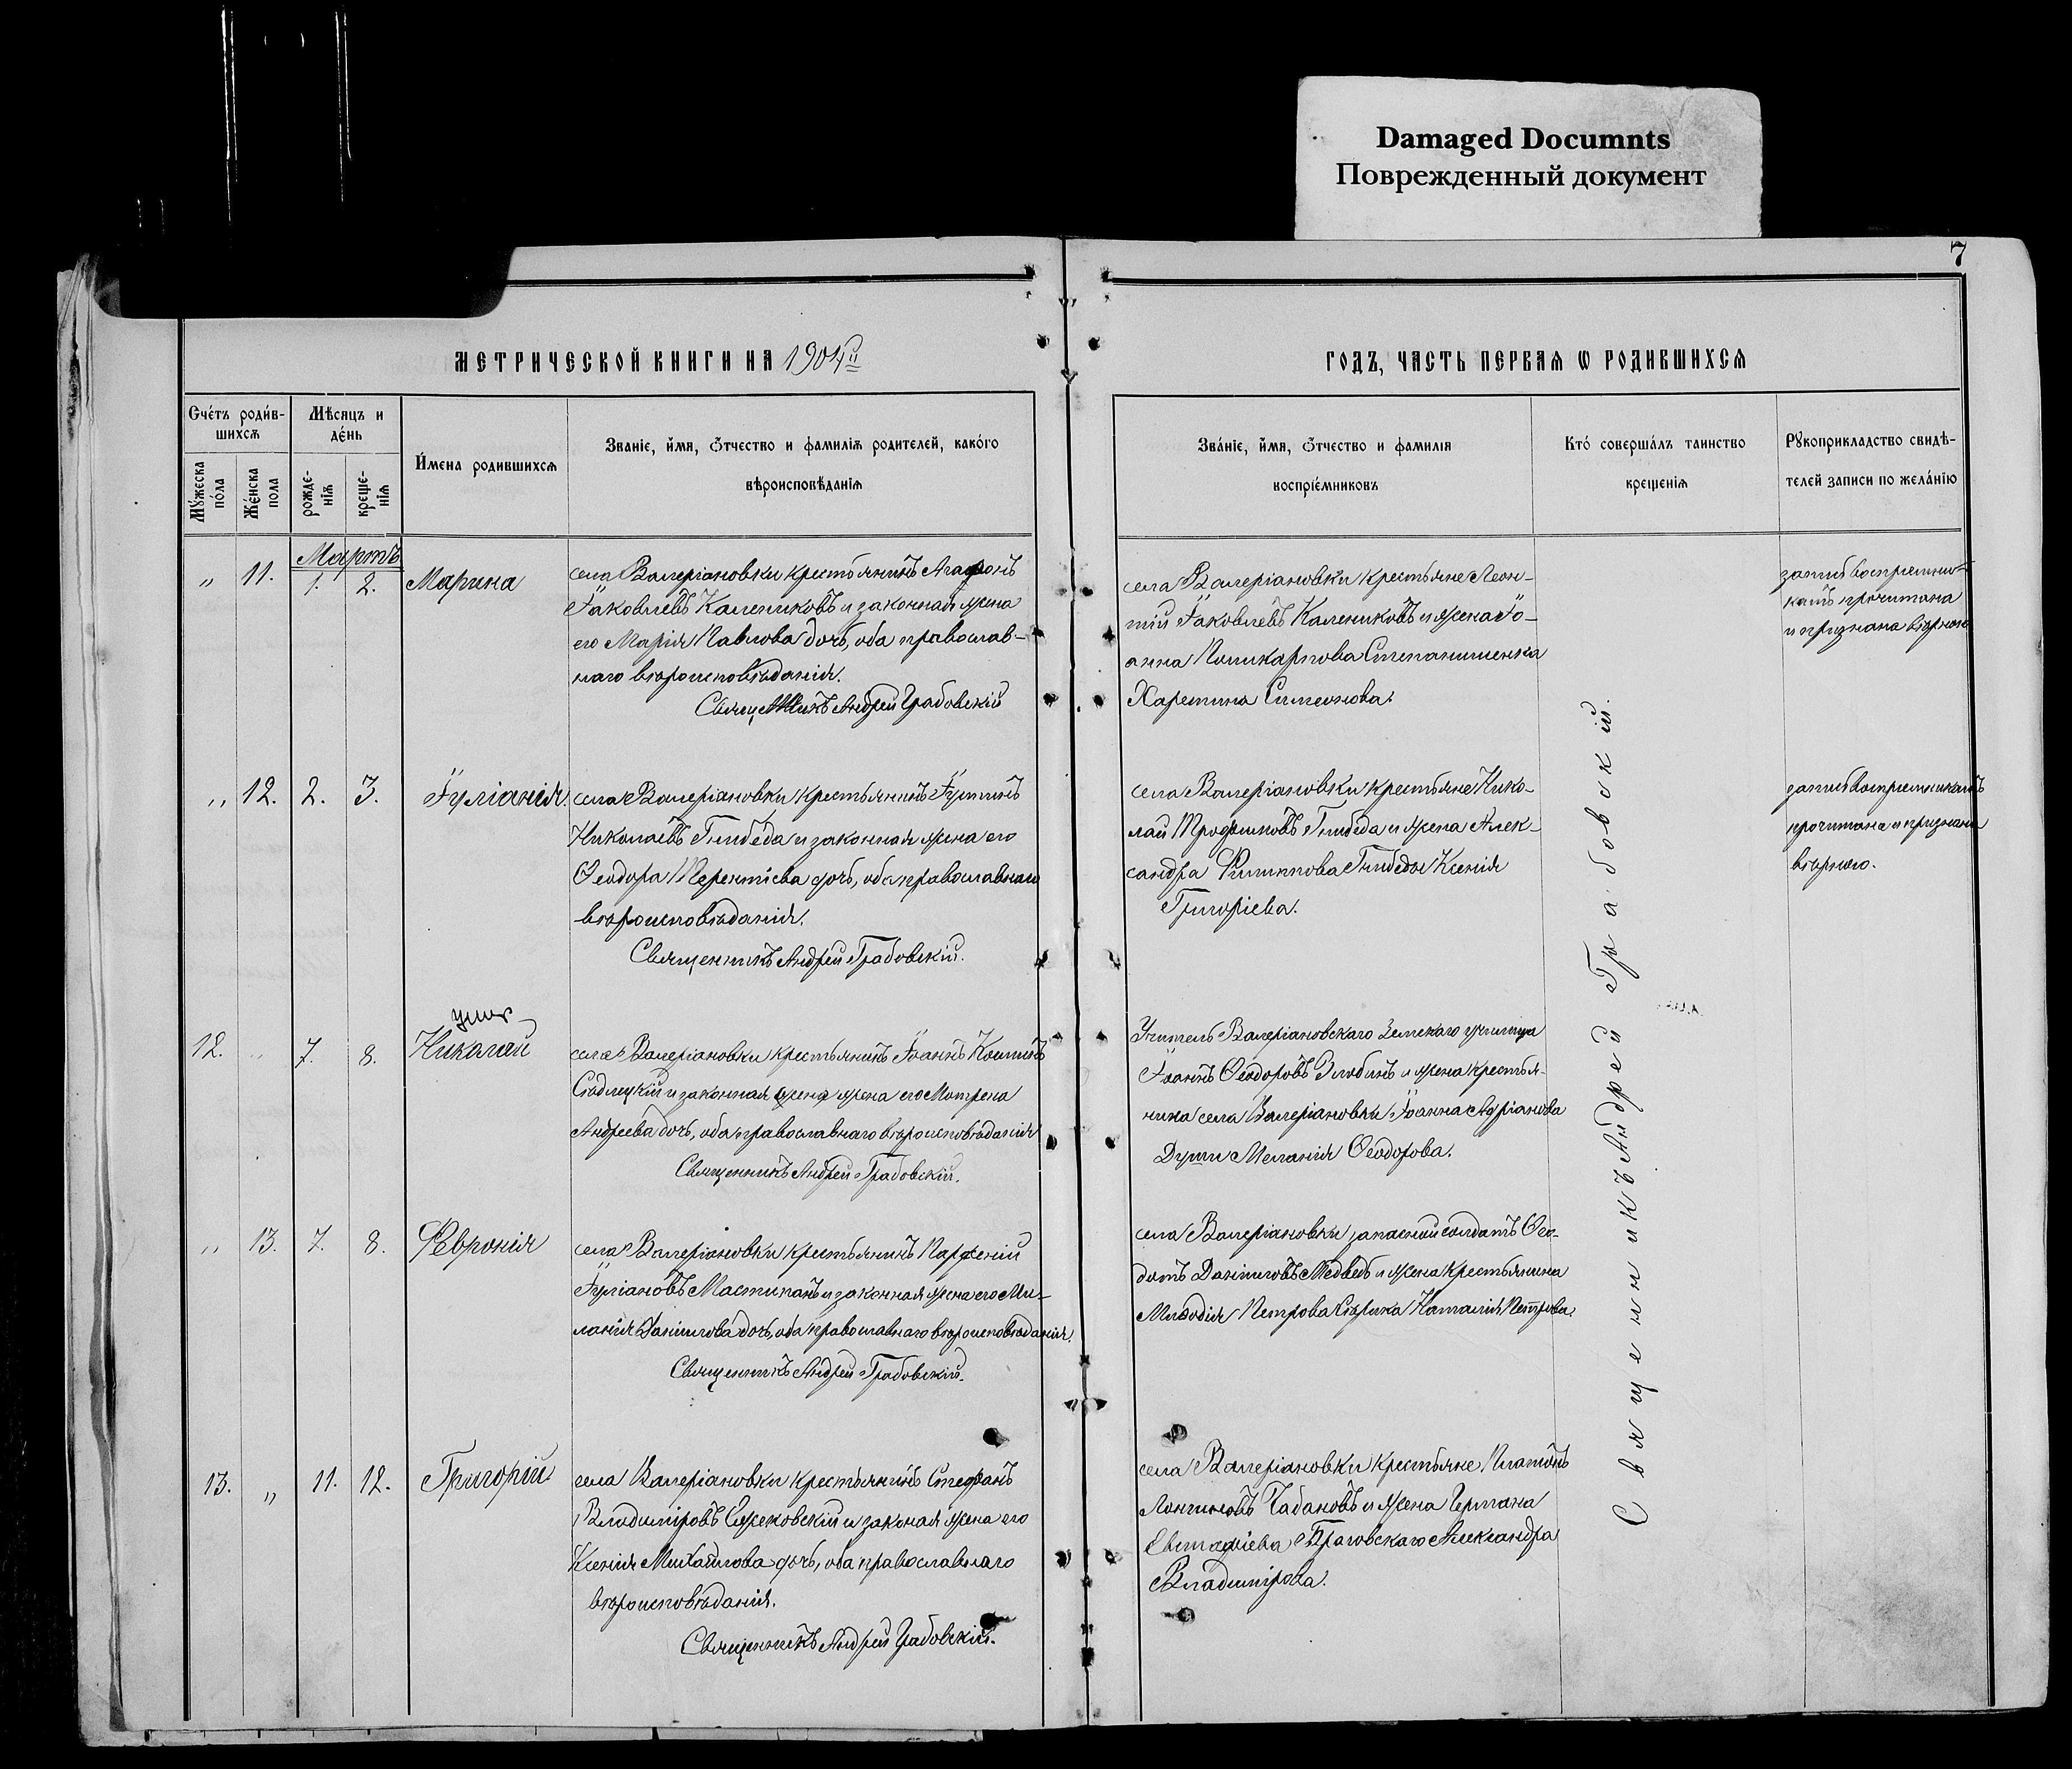 Damaged Documnts
Поврежденный документ
7
МЕТРИЧЕСКОЙ КНИГИ НА 1904й
ГОДЪ, ЧАСТЬ ПЕРВАѦ Ѡ РОДИВШИХСѦ
Счéтъ роди́в-
шихсѧ
Мѣсяцъ и
де́нь
Мꙋ́жеска
по́ла
Же́нска
пола
рожде-
нїѧ
креще-
нїѧ
И́мена родившихсѧ
Званїе, и́мѧ, ѻ҆́тчество и фамилїѧ родителей, како́го
вѣроисповѣданїѧ
Зва́нїе, и́мѧ, ѻ҆́тчество и фамилїѧ
воспрїе́мниковъ
Кто́ совершáлъ таинство
крещенїѧ
Рꙋкоприкладство свидѣ-
телей записи по желáнїю
Мартъ
„ 11. 1. 2. Марина
села Валеріановки крестьянинъ Агафонъ
Іаковлевъ Калениковъ и законная жена
его Марія Павлова дочь, оба православ-
наго вѣроисповѣданія.
Священникъ Андрей Грабовскій
села Валеріановки крестьяне Леон-
тій Іаковлевъ Калениковъ и жена Іо-
анна Поликарпова Степанишенка
Харитина Симеонова.
запись воспреемни-
камъ прочитана
и признана вѣрною
„ 12. 2. 3. Іуліанія.
села Валеріановки крестьянинъ Іустинъ
Николаевъ Гнибѣда и законная жена его
Ѳеодора Терентіева дочь, оба православнаго
вѣроисповѣданія.
Священникъ Андрей Грабовскій.
села Валеріановки крестьяне Нико-
лай Трофимовъ Гнибѣда и жена Алек-
сандра Филиппова Гнибѣды Ксенія
Григоріева.
запись воспреемникамъ
прочитана и признана
вѣрною.
умер
12. „ 7. 8. Николай
села Валеріановки крестьянинъ Іоаннъ
Сѣдлецкій и законная жена жена его Мотрена
Андреева дочь, оба православнаго вѣроисповѣданія
Священникъ Андрей Грабовскій.
Учитель Валеріановскаго Земскаго училища
Іоаннъ Ѳеодоровъ Злобинъ и жена крестья-
нина села Валеріановки Іоанна Адріанова
Души Меланія Ѳеодорова.
„ 13. 7. 8. Февронія
села Валеріановки крестьянинъ Парфеній
Іуліановъ Мастипанъ и законная жена его Ми-
ланія Даниилова дочь, оба православнаго вѣроисповѣданія.
Священникъ Андрей Грабовскій.
села Валеріановки запасный солдатъ Ѳео-
дотъ Данииловъ Медведь и жена крестьянина
Меѳодія Петрова Сѣрика Наталія Петрова.
13. „ 11. 12. Григорій
села Валеріановки крестьянинъ Стефанъ
Владиміровъ и законая жена его
Ксенія Михайлова дочь, оба православнаго
вѣроисповѣданія.
Священникъ Андрей Грабовскій.
села Валеріановки крестьяне Платонъ
Лонгиновъ Чабановъ и жена Германа
Евстафіева Александра
Владимірова.
Священникъ Андрей Грабовскій.